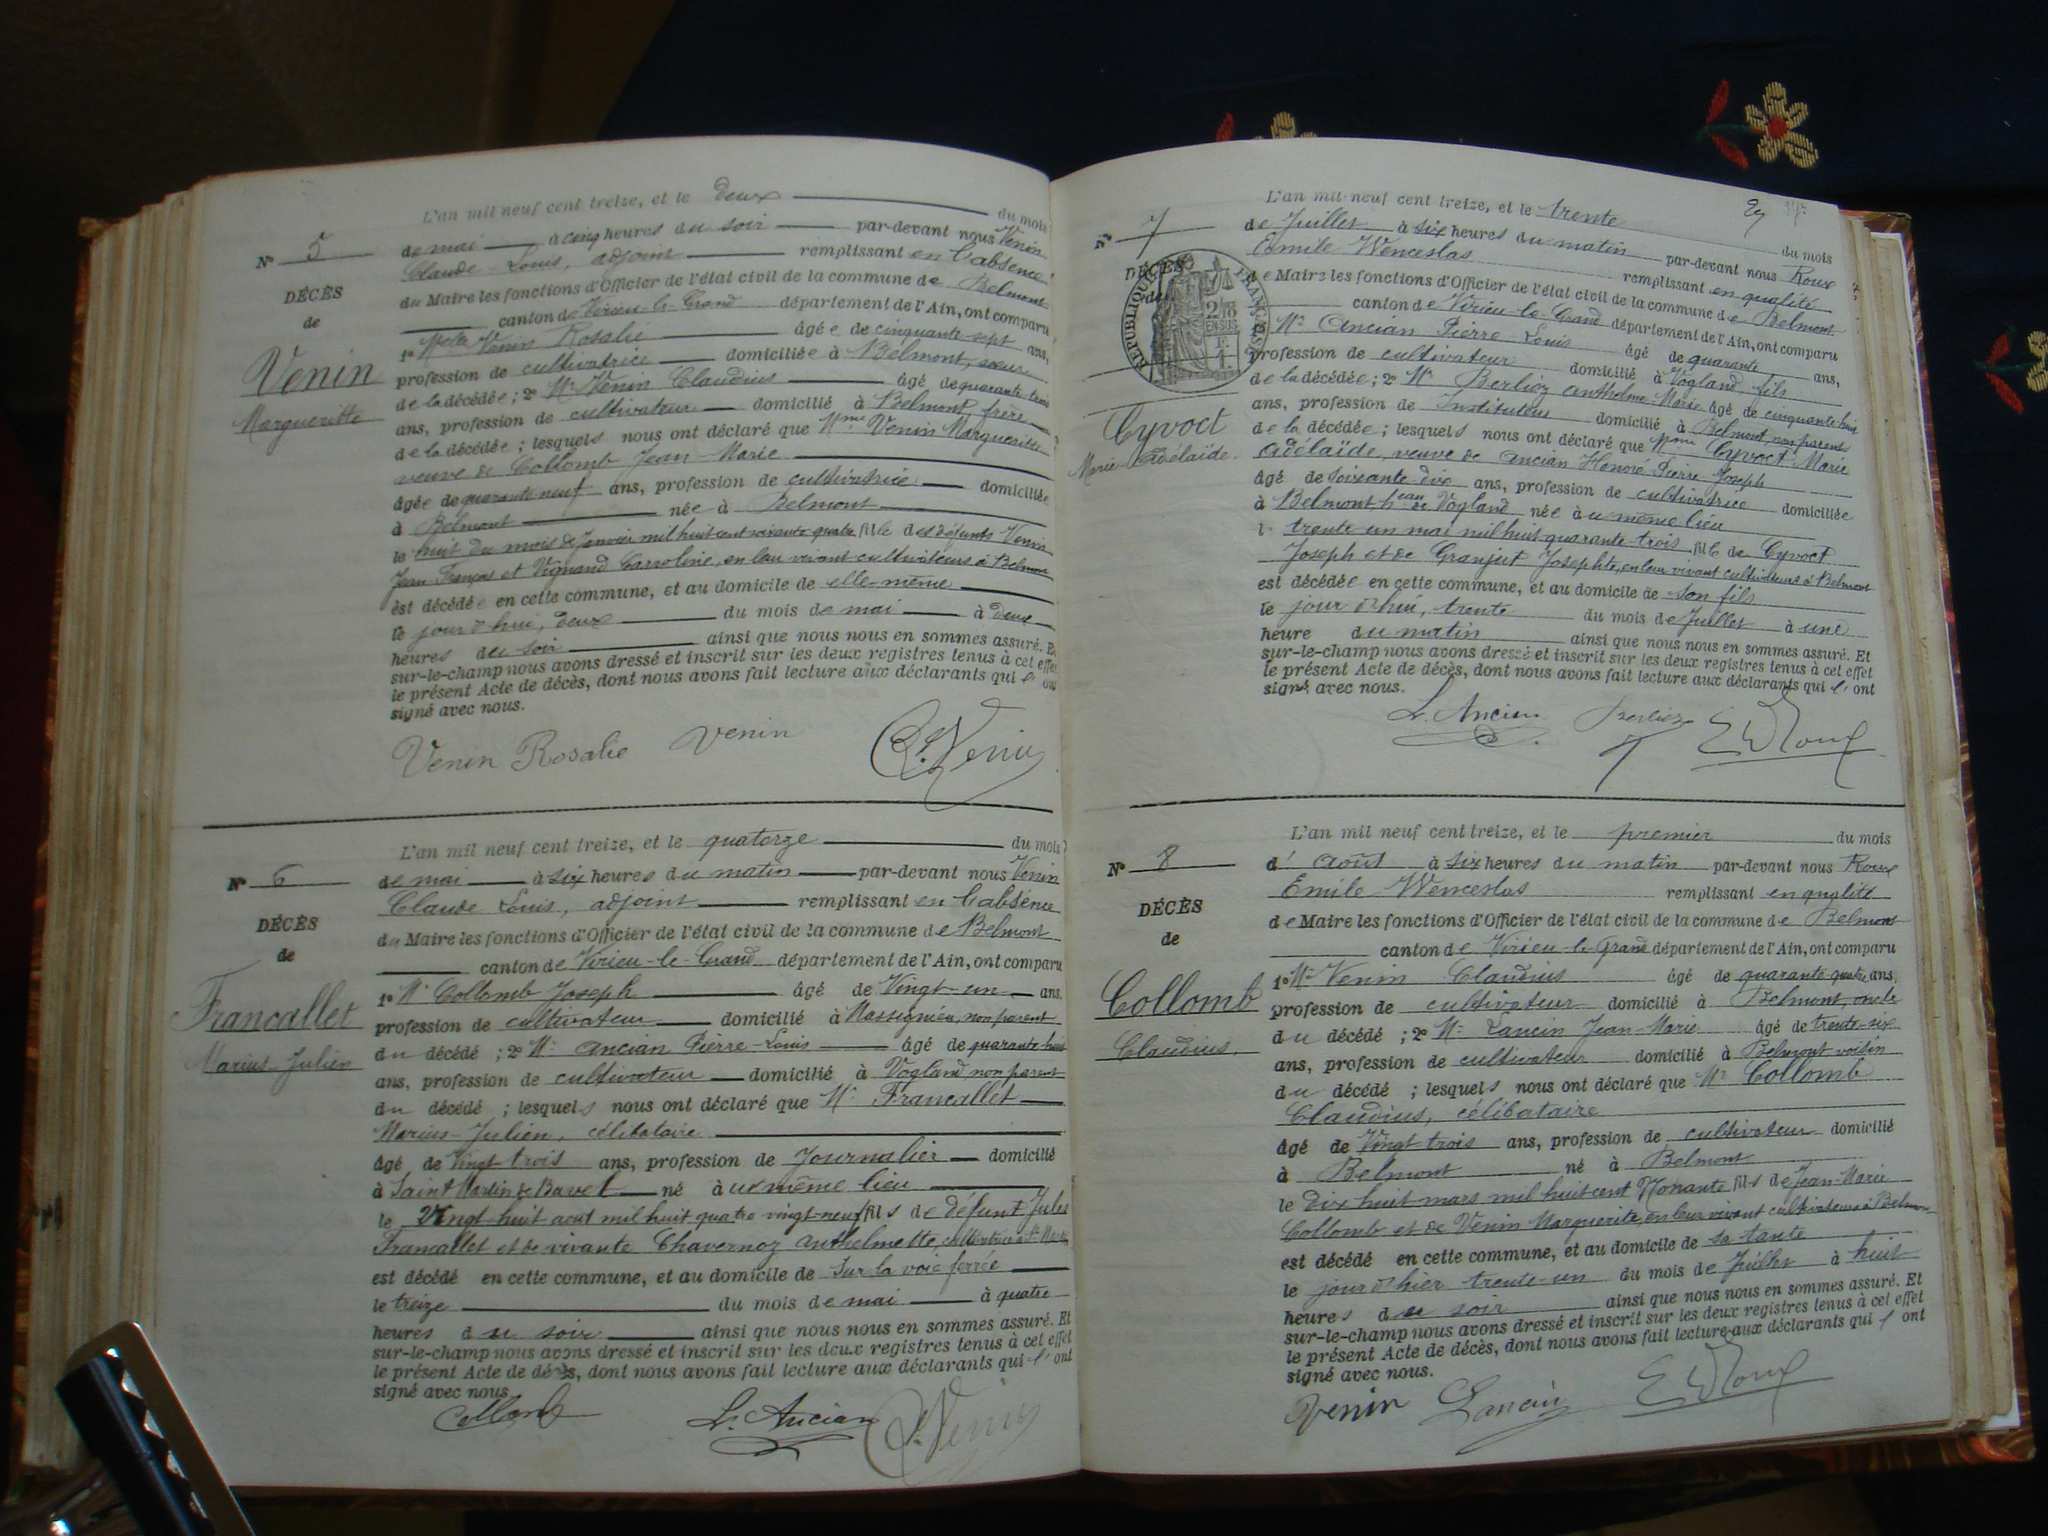 L'an mil neuf cent treize, et le deux du mois
N° 5
de mai à cinq heures du soir par-devant nous Venin
Claude Louis, adjoint remplissant en l'absence
du Maire les fonctions d'Officier de l'état civil de la commune de Belmont
canton de Virieu-le-Grand département de l'Ain, ont comparu
DÉCÈS
de
Venin
Margueritte
1° Melle Venin Rosalie âgée de cinquante sept ans,
profession de cultivatrice domiciliée à Belmont, sœur
de la décédée; 2° Mr Venin Claudius âgé de quarante trois
ans, profession de cultivateur domicilié à Belmont frère
de la décédée; lesquels nous ont déclaré que Mme Venin Margueritte
veuve de Collomb Jean-Marie
âgée de quarante neuf ans, profession de cultivatrice domiciliée
à Belmont née à Belmont
le huit du mois de Janvier mil huit cent soixante quatre fille des défunts Venin
Jean François et Vignand Carroline, en leur vivant cultivateurs à Belmont
est décédée en cette commune, et au domicile de elle-même
le jour d'hui, deux du mois de mai à deux
heures du soir ainsi que nous nous en sommes assuré. Et
sur-le-champ nous avons dressé et inscrit sur les deux registres tenus à cet effet
le présent Acte de décès, dont nous avons fait lecture aux déclarants qui l'ont
signé avec nous.
Venin Rosalie Venin Cl. Venin
L'an mil neuf cent treize, et le quatorze du mois
N° 6
de mai à six heures du matin par-devant nous Venin
Claude Louis, adjoint remplissant en l'absence
du Maire les fonctions d'Officier de l'état civil de la commune de Belmont
canton de Virieu-le-Grand département de l'Ain, ont comparu
DÉCÈS
de
Francallet
Marius-Julien
1° Mr Collomb Joseph âgé de Vingt-un ans.
profession de cultivateur domicilié à Massignieu, non parent
du décédé; 2° Mr Ancian Pierre-Louis âgé de quarante-huit
ans, profession de cultivateur domicilié à Vogland non parent
du décédé; lesquels nous ont déclaré que Mr Francallet
Marius-Julien, célibataire
âgé de Vingt trois ans, profession de Journalier domicilié
à Saint Martin de Bavel né à u même lieu
le Vingt-huit aout mil huit quatre vingt-neuf fils de défunt Jules
Francallet et de vivante Chavernoz Anthelmette, cultivatrice à St Martin
est décédé en cette commune, et au domicile de sur la voie ferrée
le treize du mois de mai à quatre
heures du soir ainsi que nous nous en sommes assuré. Et
sur-le-champ nous avons dressé et inscrit sur les deux registres tenus à cet effet
le présent Acte de décès, dont nous avons fait lecture aux déclarants qui l'ont
signé avec nous.
Collomb L. Ancian Cl. Venin
L'an mil neuf cent treize, et le trente du mois
N° 7
de Juillet à six heures du matin par-devant nous Roux
Emile Wenceslas remplissant en qualité
de Maire les fonctions d'Officier de l'état civil de la commune de Belmont
canton de Virieu-le-Grand département de l'Ain, ont comparu
DÉCÈS
de
RÉPUBLIQUE FRANÇAISE
Cyvoct
Marie Adélaïde.
Mr Ancian Pierre Louis âgé de quarante ans,
profession de cultivateur domicilié à Vogland, fils
de la décédée; 2° Mr Berlioz Anthelme Marie âgé de cinquante huit
ans, profession de Instituteur domicilié à Belmont, non parent
de la décédée; lesquels nous ont déclaré que Mme Cyvoct Marie
Adélaïde, veuve de Ancian Honoré Pierre Joseph
âgé de soixante dix ans, profession de cultivatrice domiciliée
à Belmont heau de Vogland née à u même lieu
l trente un mai mil huit quarante-trois fille de Cyvoct
Joseph et de Granjut Josephte, en leur vivant cultivateurs à Belmont
est décédée en cette commune, et au domicile de son fils
le jour d'hui, trente du mois de Juillet à une
heure du matin ainsi que nous nous en sommes assuré. Et
sur-le-champ nous avons dressé et inscrit sur les deux registres tenus à cet effet
le présent Acte de décès, dont nous avons fait lecture aux déclarants qui l'ont
signé avec nous.
L. Ancian Berlioz E W Roux
L'an mil neuf cent treize, et le premier du mois
N° 8
d' Août à six heures du matin par-devant nous Roux
Emile Wenceslas remplissant en qualité
de Maire les fonctions d'Officier de l'état civil de la commune de Belmont
canton de Virieu-le-Grand département de l'Ain, ont comparu
DÉCÈS
de
Collomb
Claudius.
1° Mr Venin Claudius âgé de quarante quatre ans,
profession de cultivateur domicilié à Belmont, oncle
du décédé; 2° Mr Lancin Jean-Marie âgé de trente-six
ans, profession de cultivateur domicilié à Belmont voisin
du décédé; lesquels nous ont déclaré que Mr Collomb
Claudius, célibataire
âgé de Vingt-trois ans, profession de cultivateur domicilié
à Belmont né à Belmont
le dix huit mars mil huit cent Nonante fils de Jean-Marie
Collomb et de Venin Marguerite, en leur vivant cultivateurs à Belmont
est décédé en cette commune, et au domicile de sa tante
le jour d'hier trente-un du mois de Juillet à huit
heures du soir ainsi que nous nous en sommes assuré. Et
sur-le-champ nous avons dressé et inscrit sur les deux registres tenus à cet effet
le présent Acte de décès, dont nous avons fait lecture aux déclarants qui l'ont
signé avec nous.
Venin Lancin E W Roux